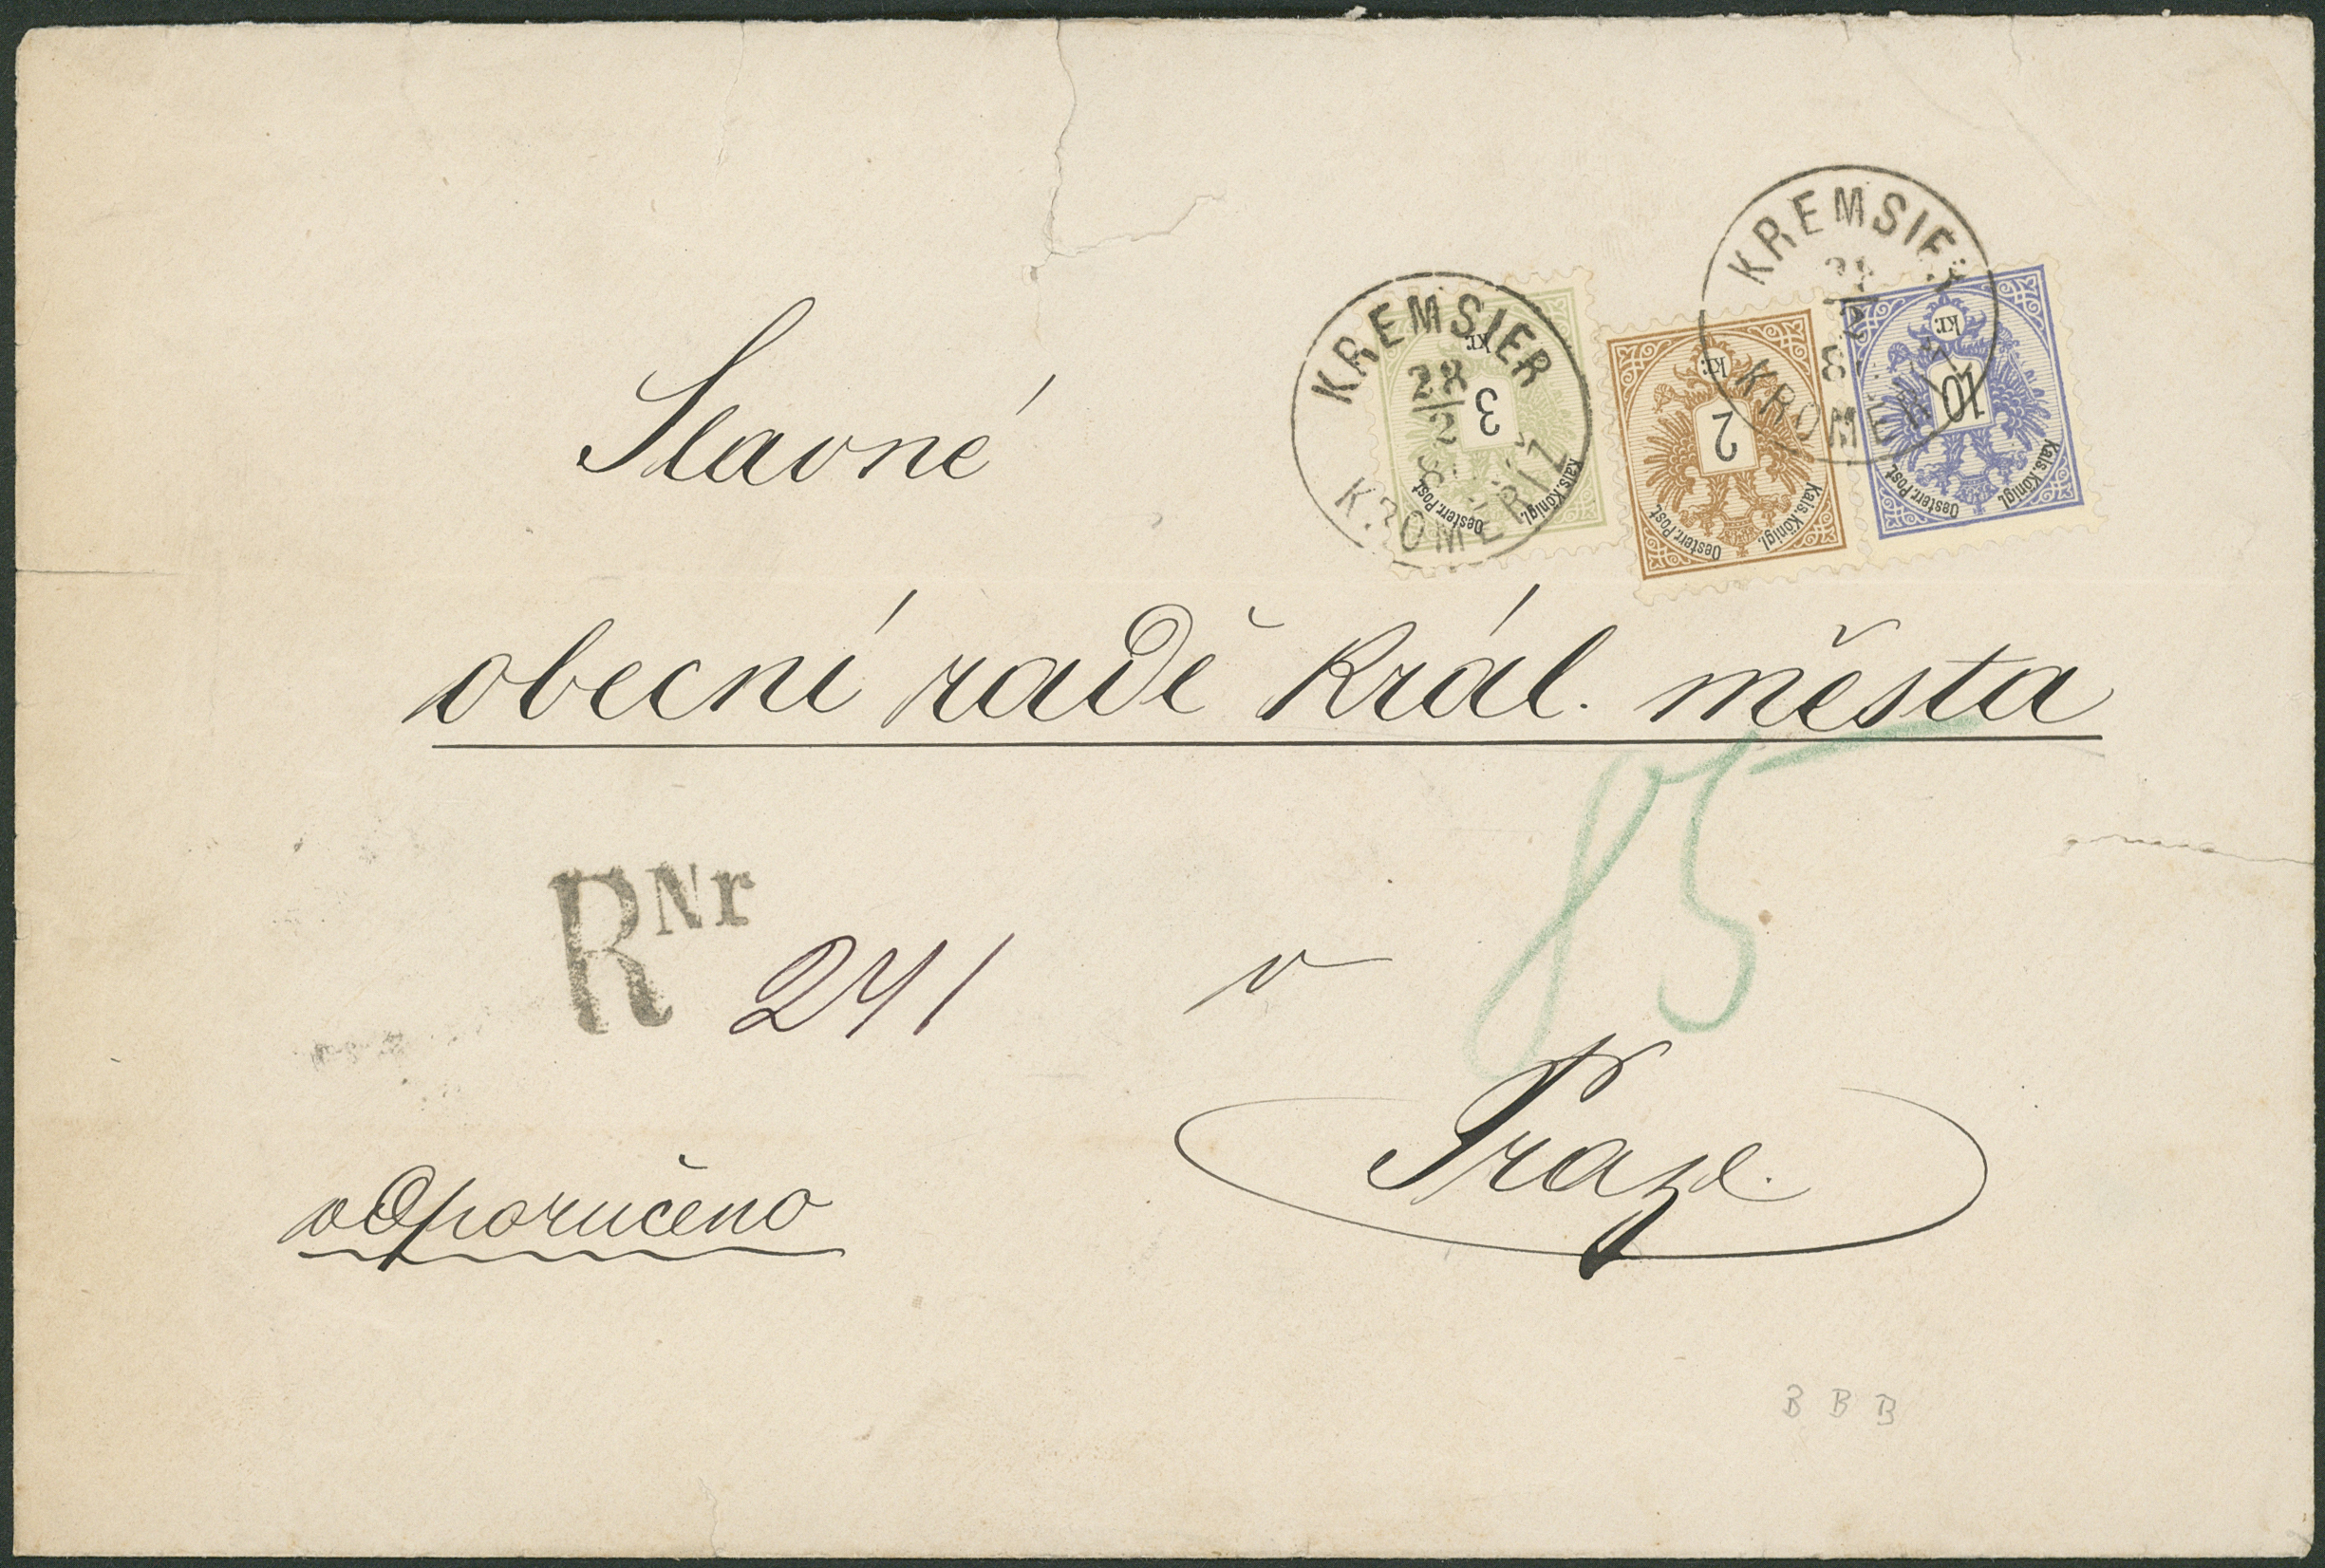 KREMSIER
28/2
KROMĚŘIŽ
3 kr.
Kais. Königl. Oesterr. Post
KREMSIER
KROMĚŘ
2 kr.
Kais. Königl. Oesterr. Post
10 kr.
Kais. Königl. Oesterr. Post
Slavné
obecní radě král. města
85
R Nr 241
v
Praze.
odporučeno
B B B